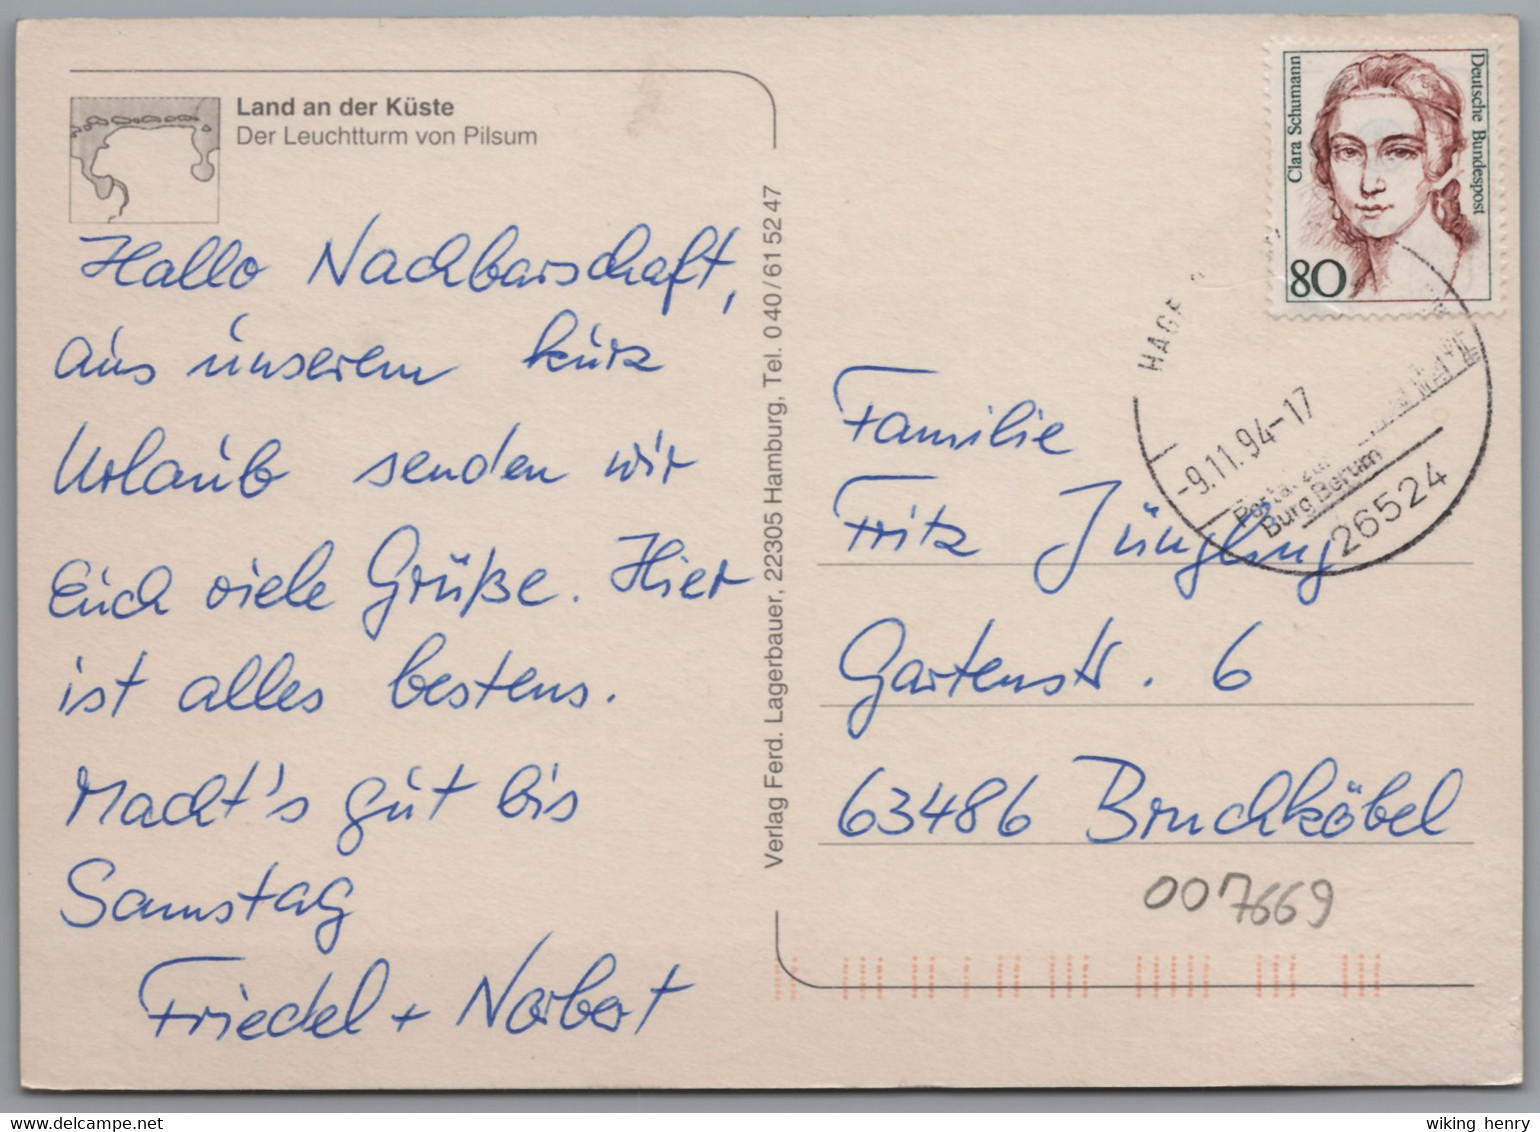 Land an der Küste
Der Leuchtturm von Pilsum
Hallo Nachbarschaft,
aus unserem kurz
Urlaub senden wir
Euch viele Grüße. Hier
ist alles bestens.
Macht's gut bis
Samstag
Friedel + Norbert
Verlag Ferd. Lagerbauer, 22305 Hamburg, Tel. 040/61 52 47
Clara Schumann
Deutsche Bundespost
80
HAGE
-9.11.94-17
Burg Berum
26524
Familie
Fritz Jüngling
Gartenstr. 6
63486 Bruchköbel
007669
wiking henry